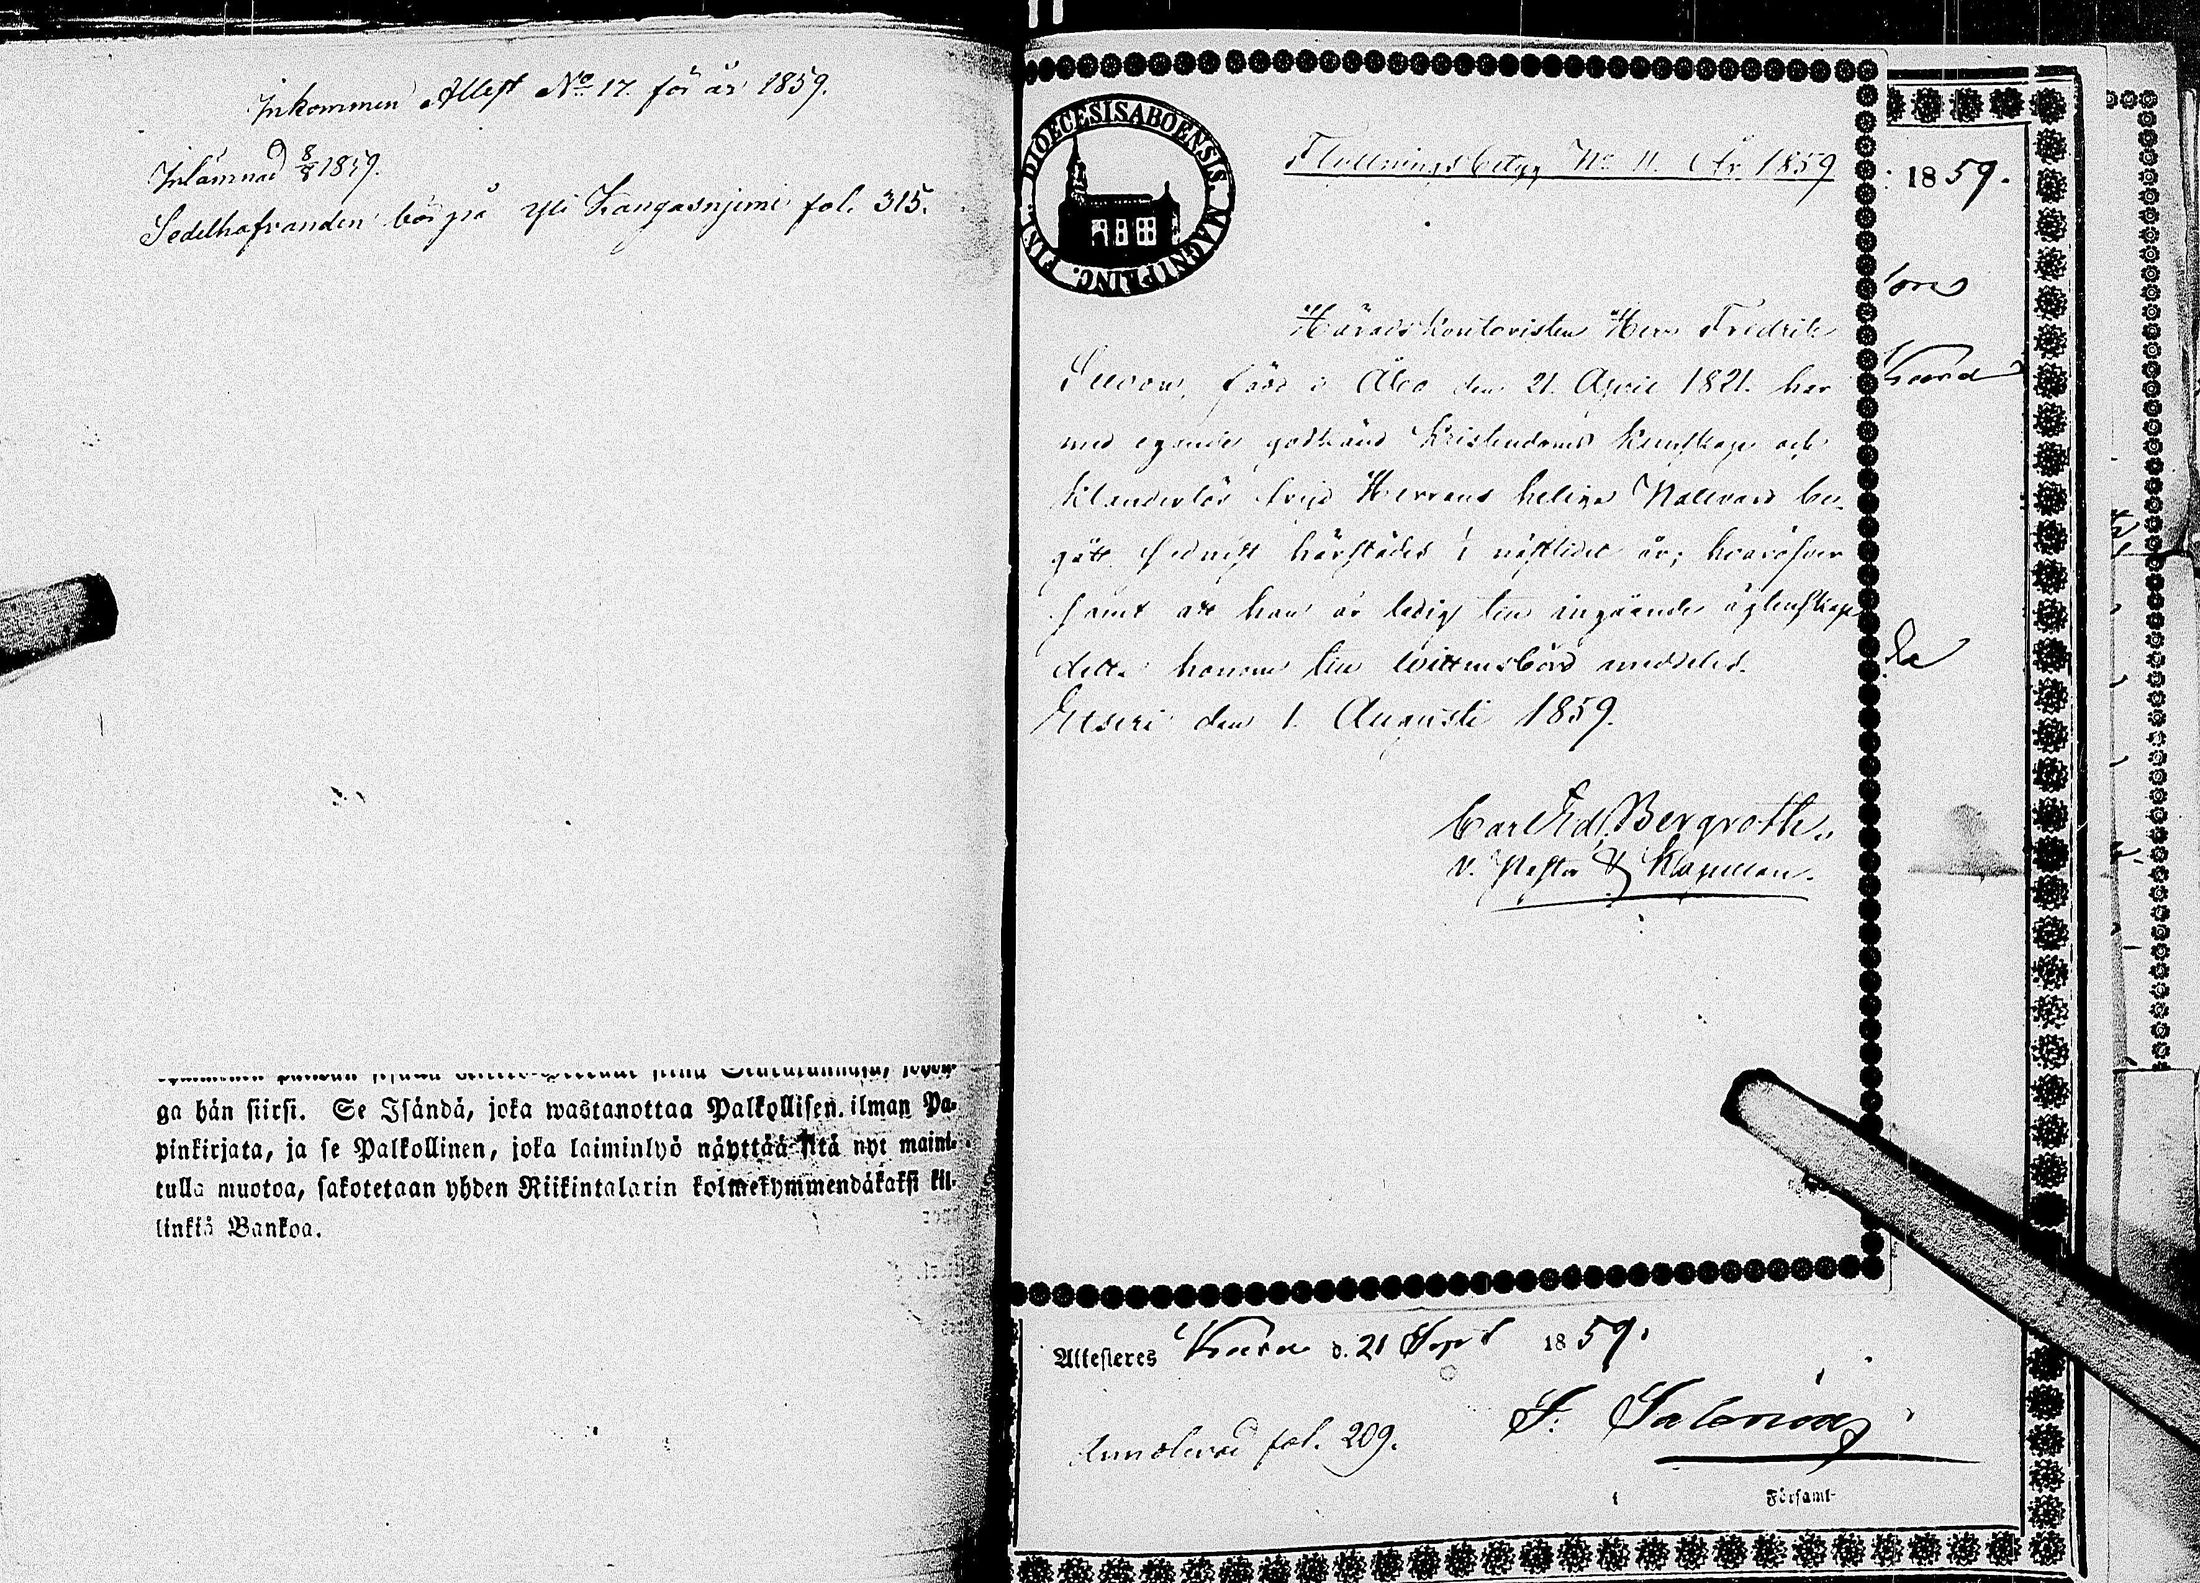 Inkommen Attest No 17. för år 1859.
Inlämnad 8/8 1859.
Sedelhafvanden bör på Yli Kangasnjemi fol. 315.
ga hän siirsi. Se Isändä, joka wastanottaa Palkollisen ilman Pa-
pinkirjata, ja se Palkollinen, joka laiminlyö näyttää sitä nyt maini-
tulla muotoa, sakotetaan yhden Riikintalarin kolmekymmendäkaksi kil-
linkiä Bankoa.
DIOECESIS ABOËNSIS. MAGNI PRINC. FINL.
Flyttningsbetyg No 11. År 1859
Häradskontoristen Herr Fredrik
född i Åbo den 21. April 1821. har
med egande godkänd Kristendoms kunskap och
klanderlös frejd Herrans heliga Nattvard be-
gått sednast härstädes i nästlidet år; hvaröfver
samt att han är ledig till ingående äktenskap
detta honom till wittnesbörd meddelas.
Etseri den 1. Augusti 1859.
Carl Fd. Bergroth.
v. Pastor & Kapellan.
1859.
Attesteras d. 21 Sept 1859.
fol. 209.
Församl-